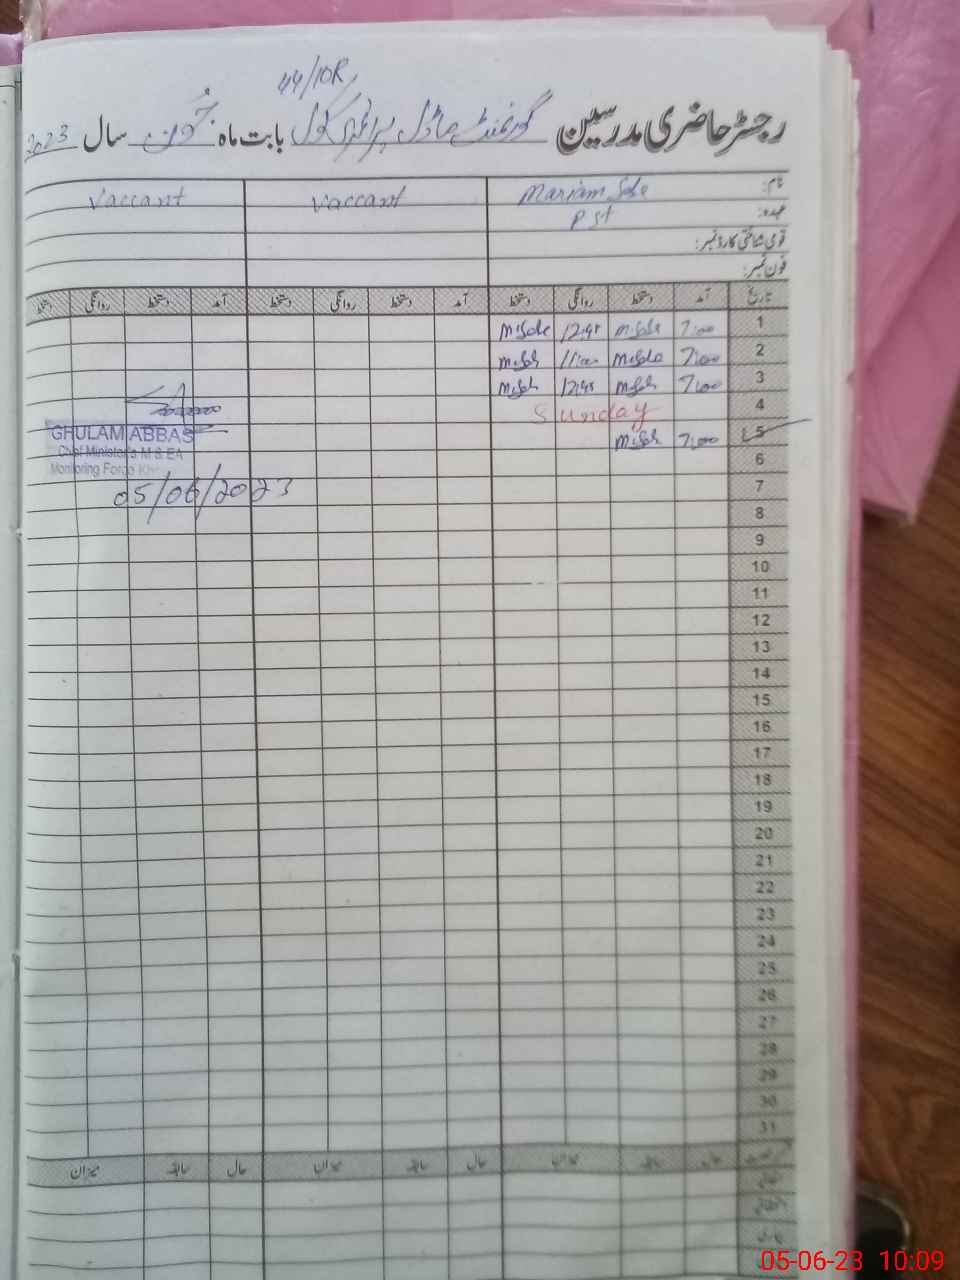 44/10R
رجسٹر حاضری مدرسین گورنمنٹ ماڈل پرائمری سکول بابت ماہ جون سال 2023
نام: Mariam Vaccant Vaccant
عہدہ: PST
قومی شناختی کارڈ نمبر:
فون نمبر:
تاریخ آمد دستخط روانگی دستخط آمد دستخط روانگی دستخط آمد دستخط روانگی دستخط
1 7:00 12:45
2 7:00 11:00
3 7:00 12:45
4 Sunday
5 7:00
6
7
8
9
10
11
12
13
14
15
16
17
18
19
20
21
22
23
24
25
26
27
28
29
30
31
GHULAM ABBAS
Chief Minister's M & EA
Monitoring Force
05/06/2023
حال سابقہ میزان حال سابقہ میزان حال سابقہ میزان
05-06-23 10:09